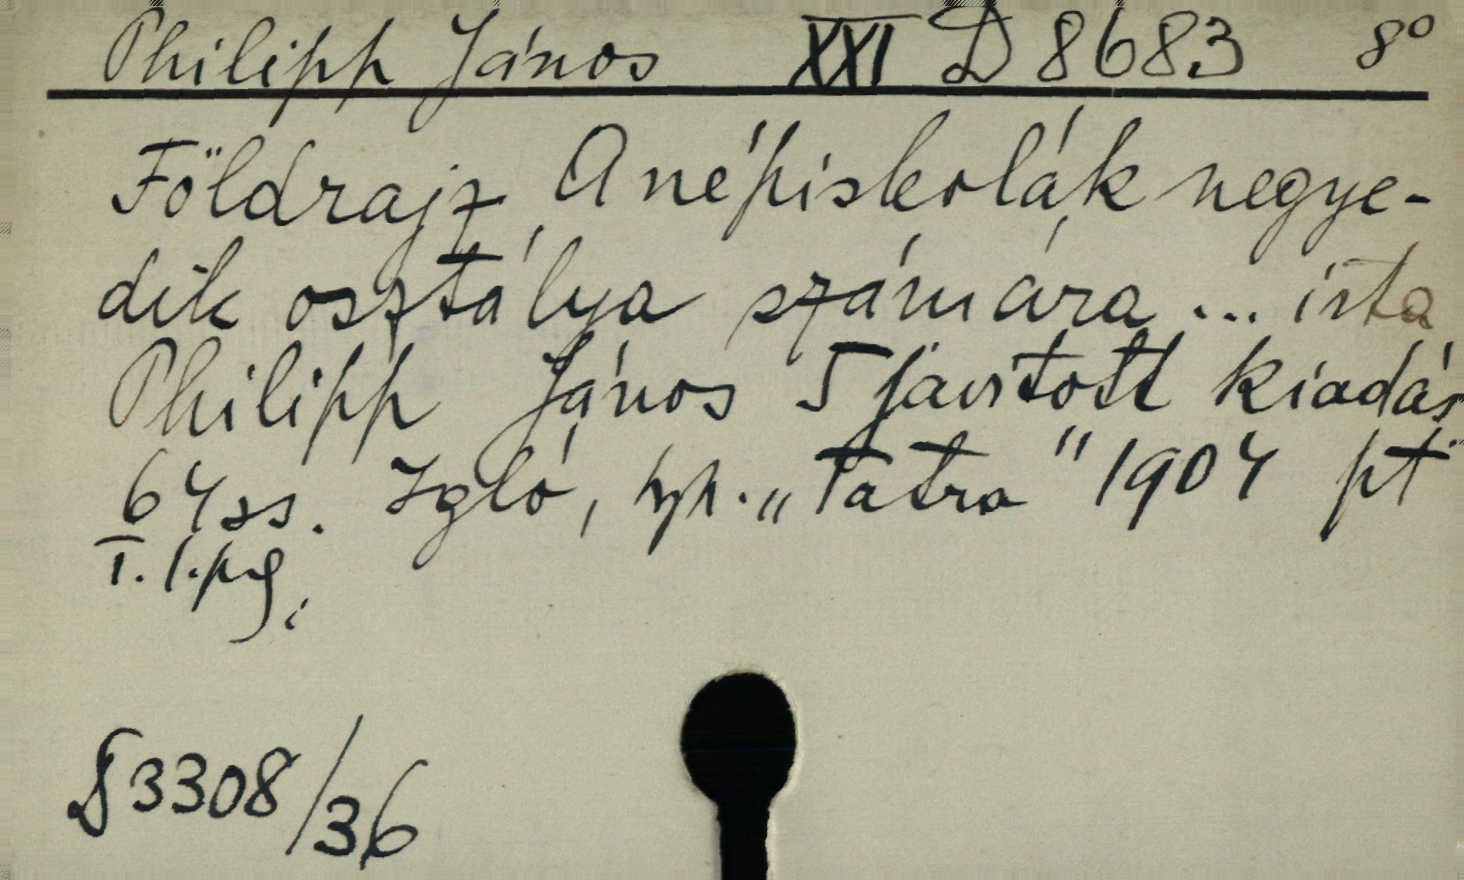 Philipp János XXI D 8683 8°
Földrajz. A népiskolák negye-
dik osztálya számára ... irta
Philipp János 5 javitott kiadás
64 ss. Igló, typ. „Tatra" 1904 pt
I. 1. prg.
§ 3308/36